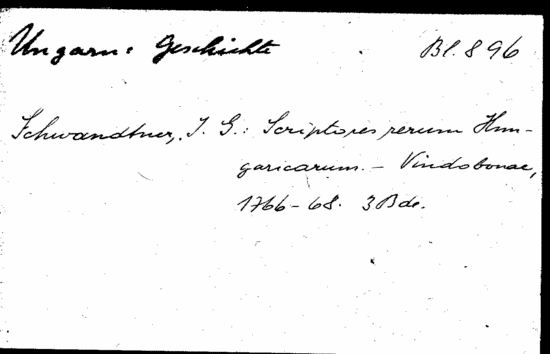 Ungarn: Geschichte
Bl. 896
Schwandtner, I. G.: Scriptores rerum Hun-
garicarum. – Vindobonae,
1766-68. 3 Bde.